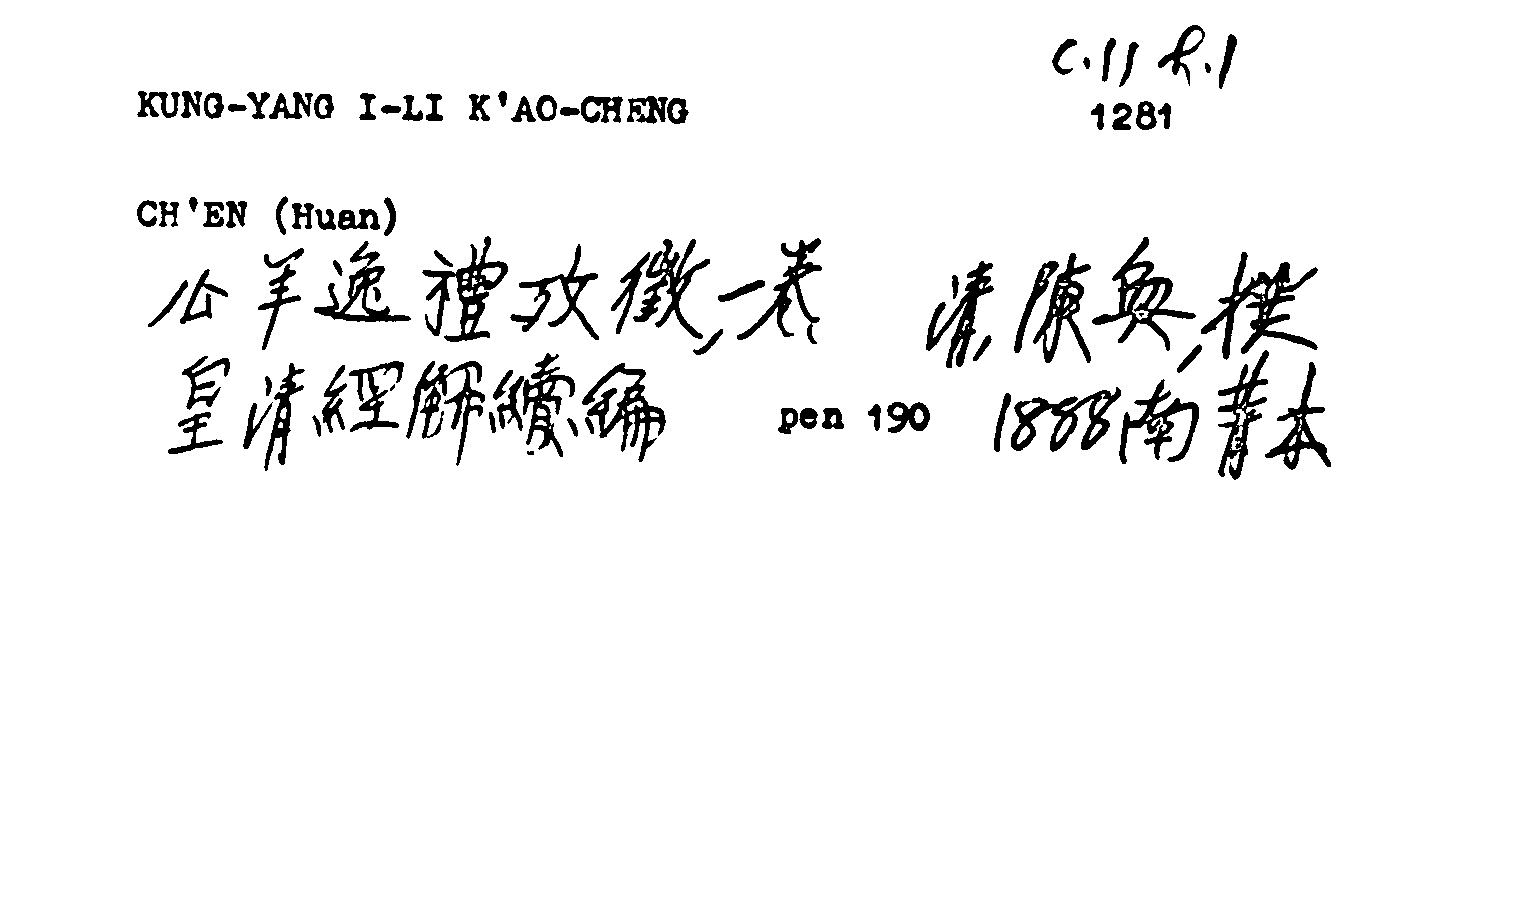 C.11 h.1
KUNG-YANG I-LI K'AO-CHENG 1281
CH'EN (Huan)
公羊逸禮攷徵,一卷 清,陳奐,撰
皇清經解續編 pen 190 1888南菁本